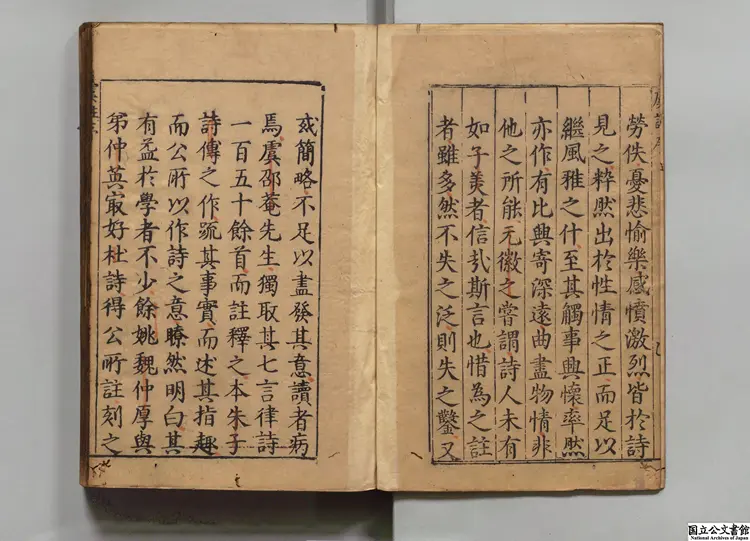 勞佚憂悲愉樂感憤激烈皆於詩
見之粹然出於性情之正而足以
繼風雅之什至其觸事興懷率然
亦作有比興寄深遠曲盡物情非
他之所能元微之嘗謂詩人未有
如子美者信哉斯言也惜為之註
者雖多然不失之泛則失之鑿又
或簡略不足以盡發其意讀者病
焉虞邵菴先生獨取其七言律詩
一百五十餘首而註釋之本朱子
詩傳之作疏其事實而述其指趣
而公所以作詩之意瞭然明白其
有益於學者不少餘姚魏仲厚與
弟仲英㝡好杜詩得公所註刻之
国立公文書館
National Archives of Japan